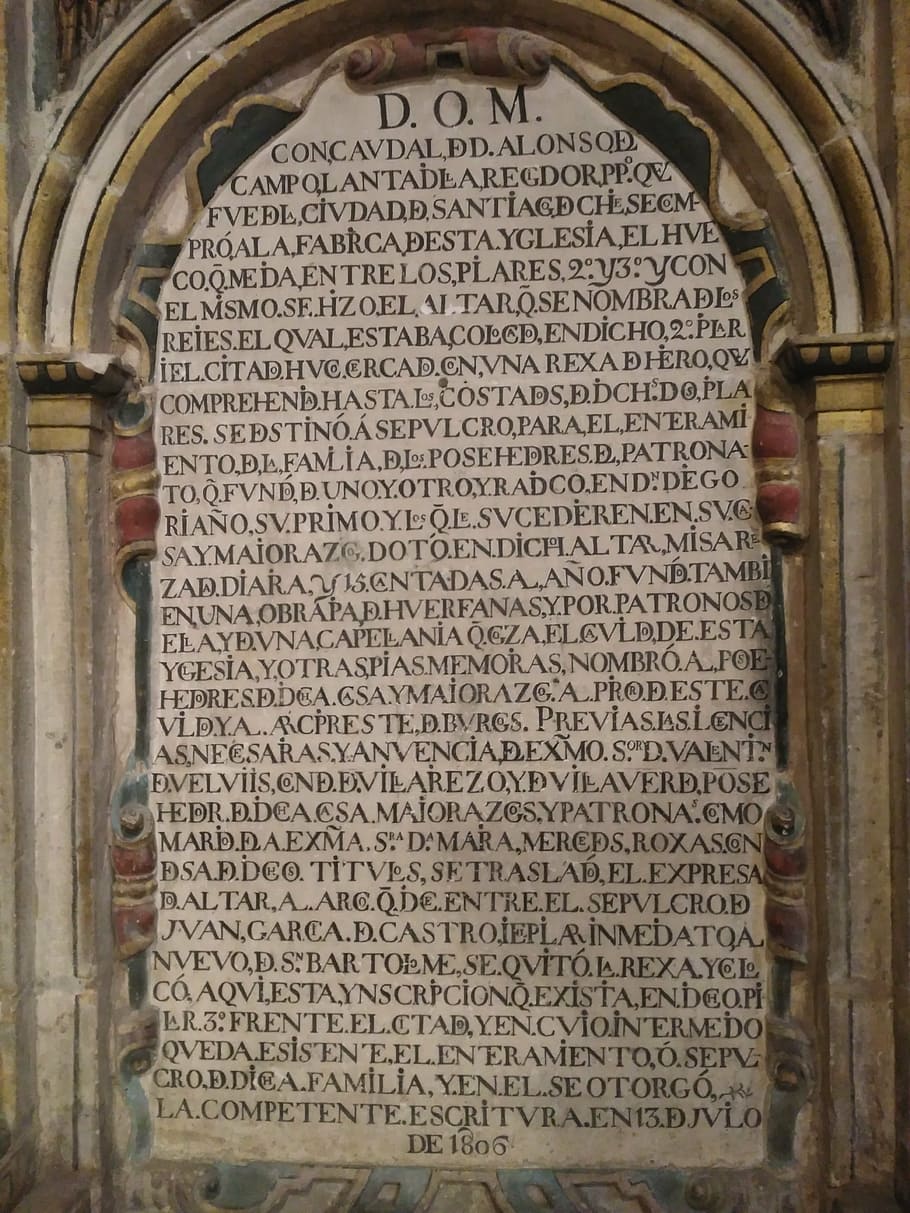 D. O. M.
CON,CAVDAL,D D. ALONSO DE
CAMPO,LANTADILLA,REGIDOR,PP.º QVE
FVE DE LA,CIVDAD,D,SANTIAGO,D CHILE,SE COM-
PRÓ,A LA,FABRICA,DE ESTA.YGLESIA,EL HVE
CO.Q̄.MEDIA,ENTRE LOS,PILARES, 2º. Y 3º. Y CON
EL MISMO.SE.HIZO.EL.ALTAR,Q̄.SE NOMBRA DE LOS
REIES.EL QVAL,ESTABA,COLOCADO,EN DICHO,2º.PILAR
I EL.CITADO.HVECO,CERCADO.CON,VNA REXA DE HIERRO,QVE
COMPREHENDE.HASTA LOS,COSTADOS,D.DICHOS.DOS,PILA
RES. SE DESTINÓ.Á SEPVLCRO,PARA,EL,ENTERAMI
ENTO,D,LA,FAMILIA,D,LOS.POSEHEDORES.DEL,PATRONA-
TO,Q̄.FVNDÓ,D.UNO.Y.OTRO,Y.RADICO.EN Dⁿ.DIEGO
RIAÑO,SV.PRIMO.Y.LOS Q̄.LE.SVCEDIEREN.EN.SV.CA
SA Y.MAIORAZGO.DOTÓ.EN.DICHO.ALTAR,MISA RE
ZADA.DIARIA,Y 15.CANTADAS.AL,AÑO.FVNDÓ.TAMBI
EN,UNA,OBRA PIA,D.HVERFANAS,Y.POR.PATRONOS D
ELLA,Y D VNA,CAPELLANIA Q̄.GOZA,EL.CAVILDO,DE.ESTA
YGLESIA,Y,OTRAS,PIAS.MEMORIAS,NOMBRÓ.A,POSE-
HEDORES.D.DICHA.CASA.Y MAIORAZGº.AL PRIOR.D.ESTE.CA
VILDO.Y AL ARCIPRESTE,D.BVRGOS. PREVIAS.LAS.LICENCI
AS,NECESARIAS.Y.ANVENCIA,DEL EXM̃O. SºR D.VALENTIN
D.VELVIIS,CONDE.D.VILLARIEZO,Y.D VILLAVERDE,POSE
HEDOR.D.DICHA.CASA.MAIORAZGOS,Y PATRONAˢ.COMO
MARIDO.D.LA EXM̃A. SRA. Dª.MARIA,MERCEDES,ROXAS.CON
DESA.D.DICHO. TITVLOS, SE TRASLADÓ,EL.EXPRESA
DO.ALTAR,AL.ARCO.Q̄.DICE.ENTRE.EL.SEPVLCRO.D
JVAN,GARCIA.D.CASTRO,I EL PILAR INMEDIATO,AL
NVEVO,D.Sⁿ.BARTOLOME,SE.QVITÓ.LA.REXA.Y COLO
CÓ,AQVI,ESTA,YNSCRIPCION Q̄.EXISTIA,EN.DICHO.PI
LAR.3º.FRENTE.EL.CITADO,Y.EN.CVIO.INTERMEDIO
QVEDA.ESISTENTE,EL.ENTERAMIENTO,Ó.SEPVL-
CRO,D.DICHA.FAMILIA,Y.EN.EL.SE OTORGÓ,
LA.COMPETENTE.ESCRITVRA.EN 13.D JVLIO
DE 1806